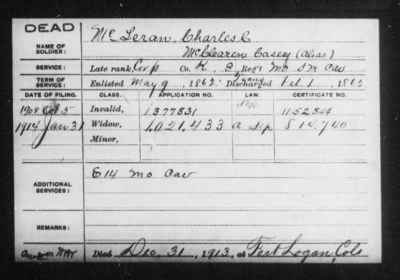 DEAD
NAME OF SOLDIER: McLeran, Charles C
McClearen Casey (Alias)
SERVICE: Late rank, Corp Co. K, 8, Reg't Mo S M Cav
TERM OF SERVICE: Enlisted May 9, 1862 Discharged Feb. 1, 1865
DATE OF FILING. CLASS. APPLICATION NO. LAW. CERTIFICATE NO.
1908 Oct 5 Invalid, 1377831 1152844
1914 Jan 31 Widow, 1,021,433 814,740
Minor,
ADDITIONAL SERVICES: E 14 Mo Cav
REMARKS:
Died Dec. 31, 1913, at Fort Logan, Colo